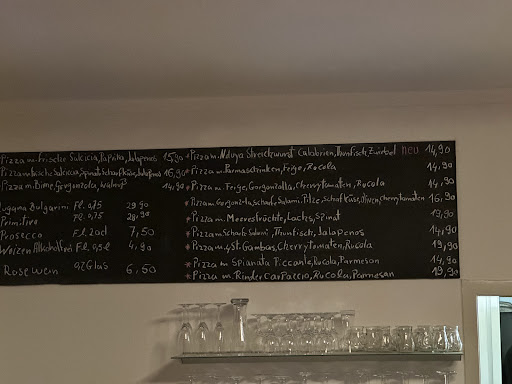 Pizza m. frische Salcicia, Paprika, Jalapenos 15,90
Pizza m. frische Salcicia, Spinat, Schafkäse, Jalapenos 16,90
Pizza m. Birne, Gorgonzola, Walnuß 14,90
Lugana Bulgarini Fl. 0,75 29,90
Primitivo Fl. 0,75 28,90
Prosecco Fl. 20cl 7,50
Weizen Alkoholfrei Fl. 0,5l 4,90
Rosewein 0,2 Glas 6,50
* Pizza m. Nduya Streichwurst Calabrien, Thunfisch, Zwiebel neu 14,90
* Pizza m. Parmaschinken, Feige, Rucola 14,90
* Pizza m. Feige, Gorgonzolla, Cherrytomaten, Rucola 14,90
* Pizza m. Gorgonzola, Schafsalami, Pilze, Schafkäse, Oliven, Cherrytomaten 16,90
* Pizza m. Meeresfrüchte, Lachs, Spinat 19,90
* Pizza m. Schafs Salami, Thunfisch, Jalapenos 14,90
* Pizza m. 4 St. Gambas, Cherrytomaten, Rucola 19,90
* Pizza m. Spianata Piccante, Rucola, Parmeson 14,90
* Pizza m. Rinder Carpaccio, Rucola, Parmesan 19,90